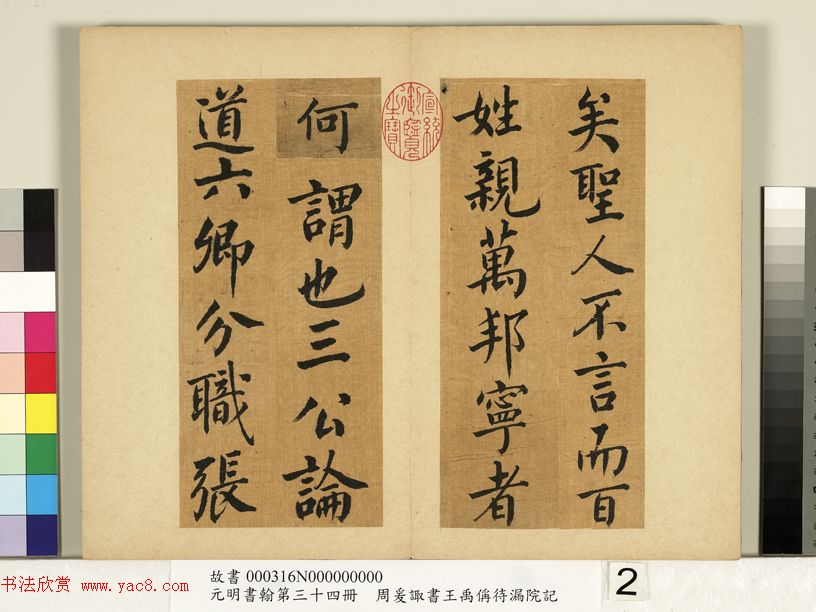 矣聖人不言而百
姓親萬邦寧者
何謂也三公論
道六卿分職張
宣統御覽之寶
2
故書 000316N000000000
元明書翰第三十四冊　周爰諏書王禹偁待漏院記
书法欣赏 www.yac8.com